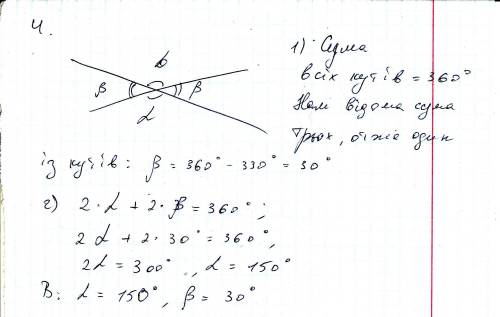 4.
α
β β
α
1) Сума
всіх кутів = 360°
Нам відома сума
трьох, отже один
із кутів: β = 360° - 330° = 30°
2) 2·α + 2·β = 360°;
2α + 2·30° = 360°,
2α = 300°, α = 150°
В: α = 150°, β = 30°